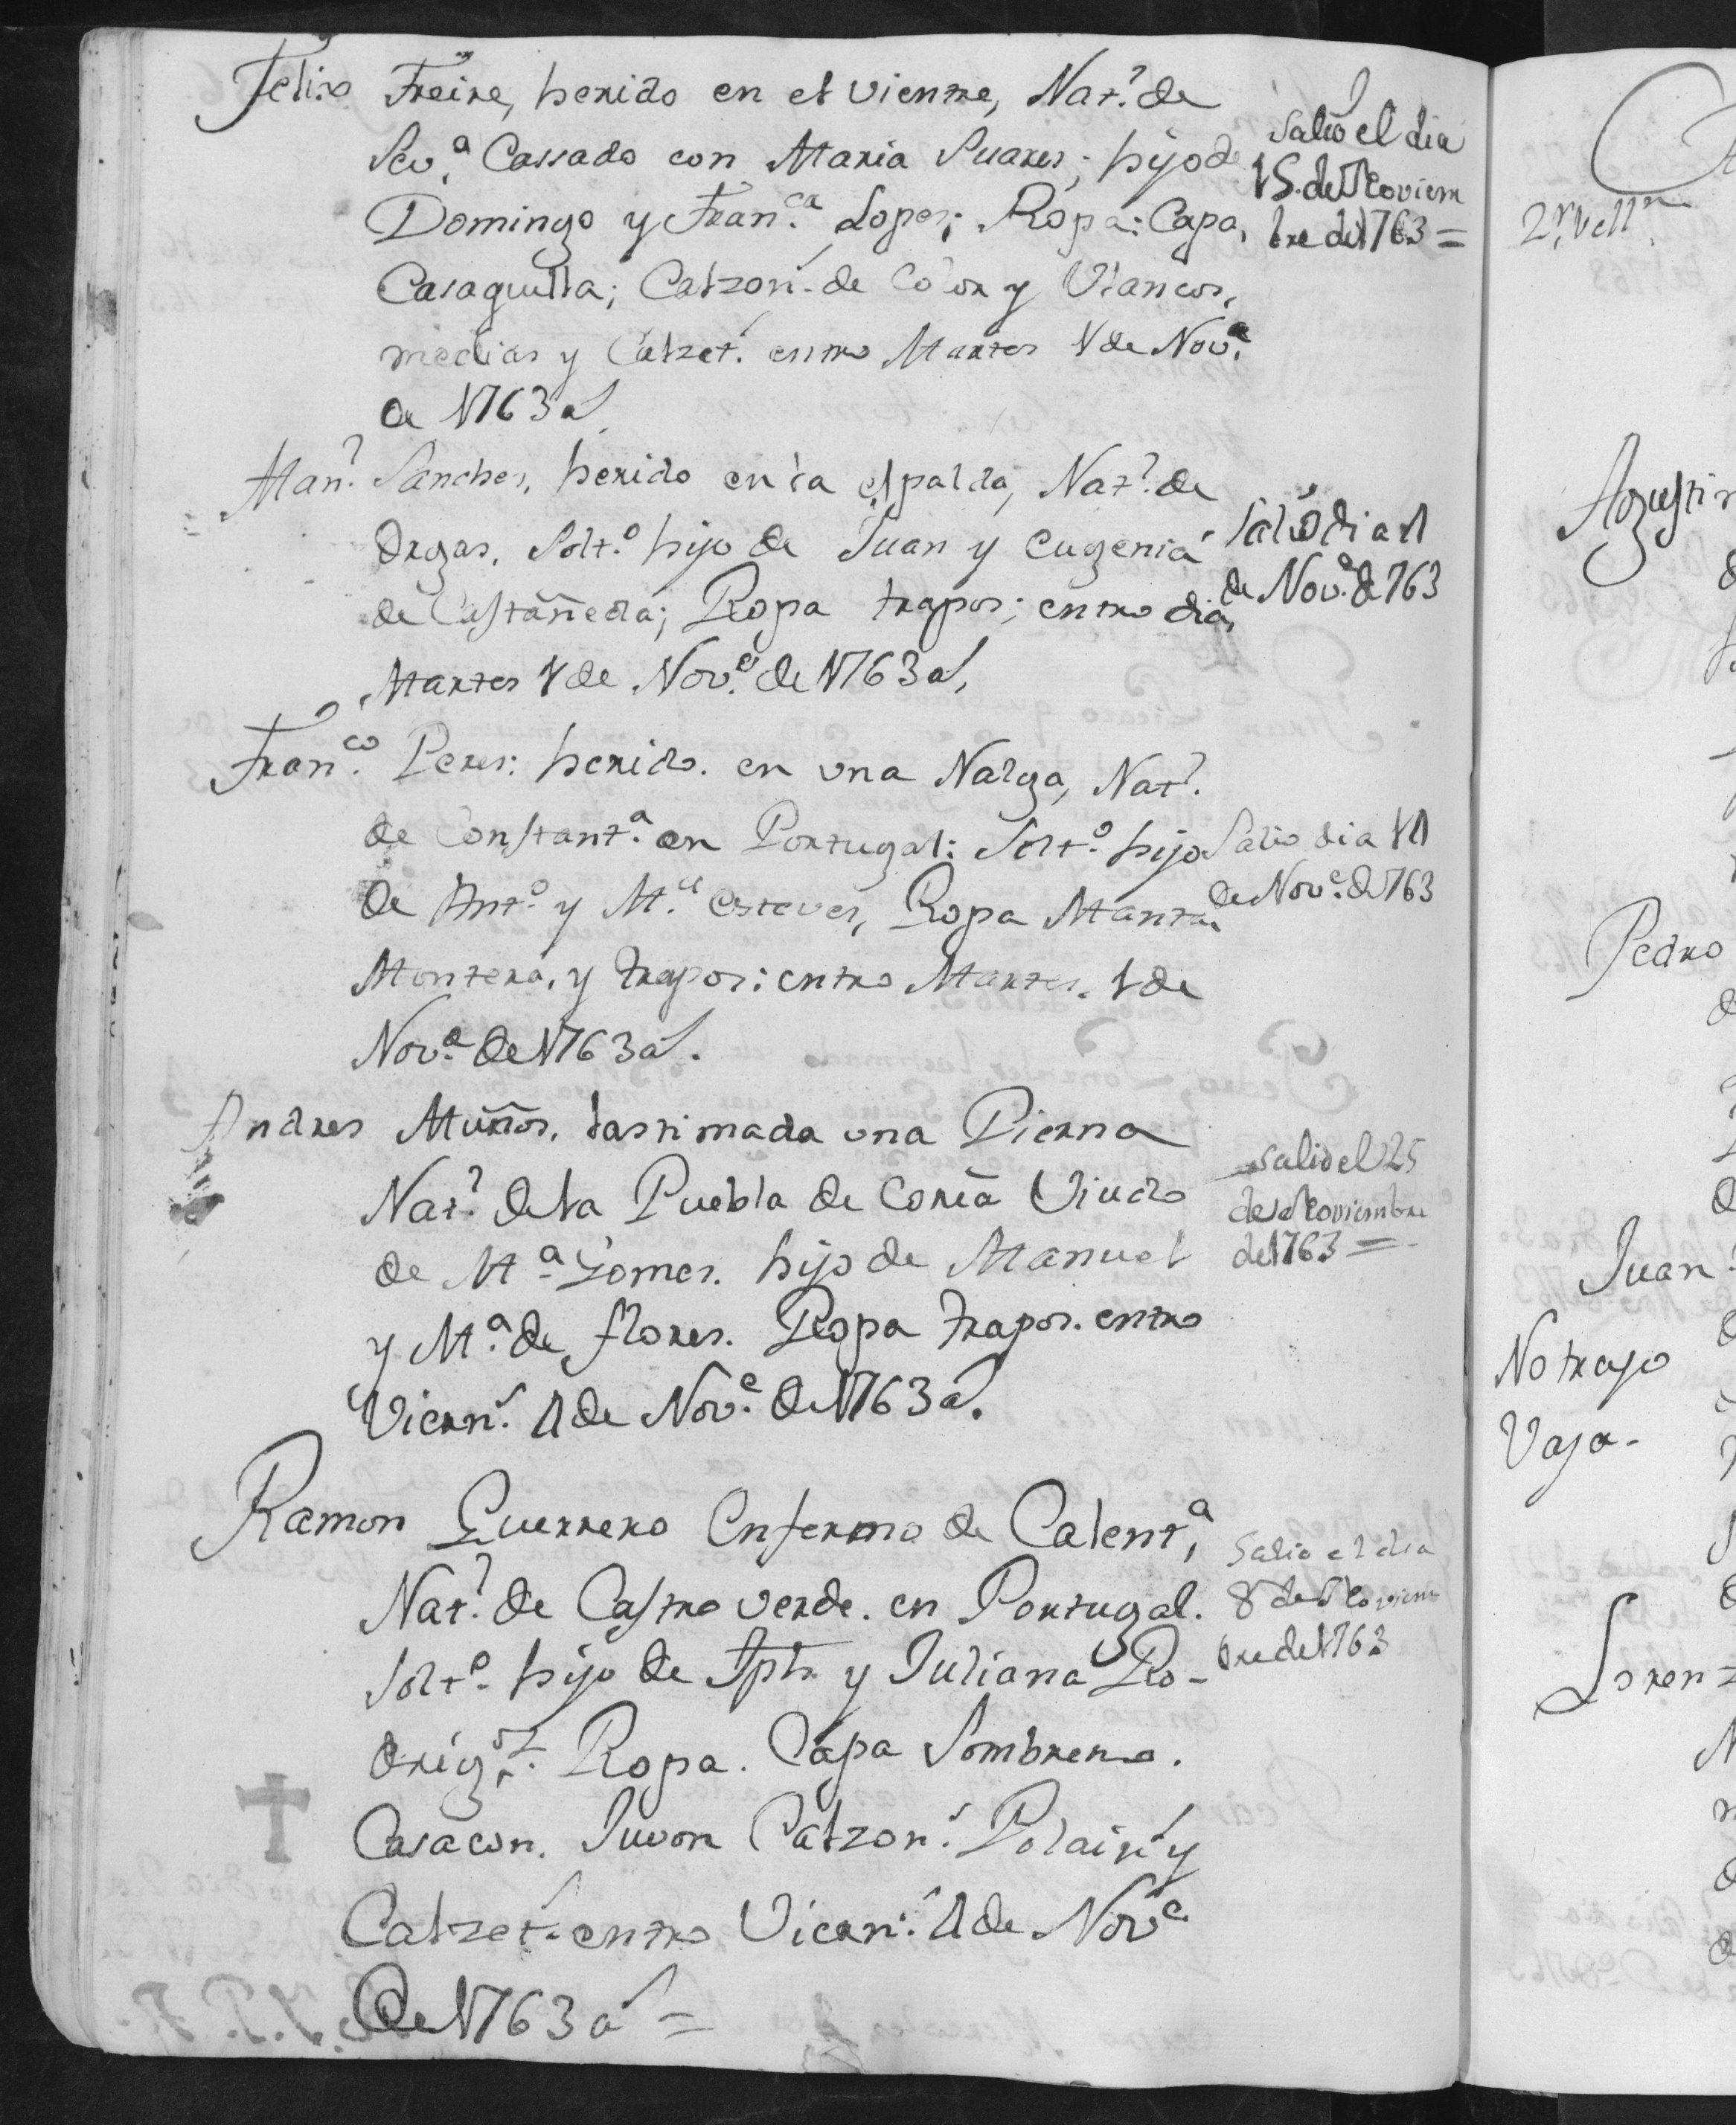 Felix Freire, herido en el vientre, Nat.l de
Sev.a Cassado con Maria Suares; hijo de
Domingo y Fran.ca Lopes; Ropa: Capa,
Casaquilla; Calzon.s de Color y Vlancos,
medias y Calzet.s entro Martes 1 de Nov.e
de 1763 a.s
Salio el dia
15. de Noviem
bre de 1763 =
Man.l Sanches, herido en la espalda, Nat.l de
Orgas, Solt.o hijo de Juan y Eugenia
de Castañeda; Ropa trapos; entro dia,
Martes 1 de Nov.e de 1763 a.s
Salio dia 11
de Nov.e de 763
Fran.co Peres: herido en una Nalga, Nat.l
de Constant.a en Portugal: Solt.o hijo
de Ant.o y M.a esteves, Ropa Manta
Montera, y trapos: entro Martes. 1 de
Nov.e de 1763 a.s
Salio dia 11
de Nov.e de 763
Andres Muños, lastimada una Pierna
Nat.l de la Puebla de Coria Viudo
de M.a Gomes. hijo de Manuel
y M.a de flores. Ropa trapos. entro
Viern.s 4 de Nov.e de 1763 a.s
Salio el 25
de Noviembre
de 1763 =
Ramon Guerrero Enfermo de Calent.a,
Nat.l de Castro verde. en Portugal.
Solt.o hijo de y Juliana Ro-
drig.s Ropa. Capa Sombrero.
Casacon. Juvon Calzon.s Polain.s y
Calzet.s entro Viern.s 4 de Nov.e
de 1763 a.s =
Salio el dia
8 de Noviem
bre de 1763
2.n Vell.n
Agustin
Pedro
Juan
No trajo
Vaja-
Loren